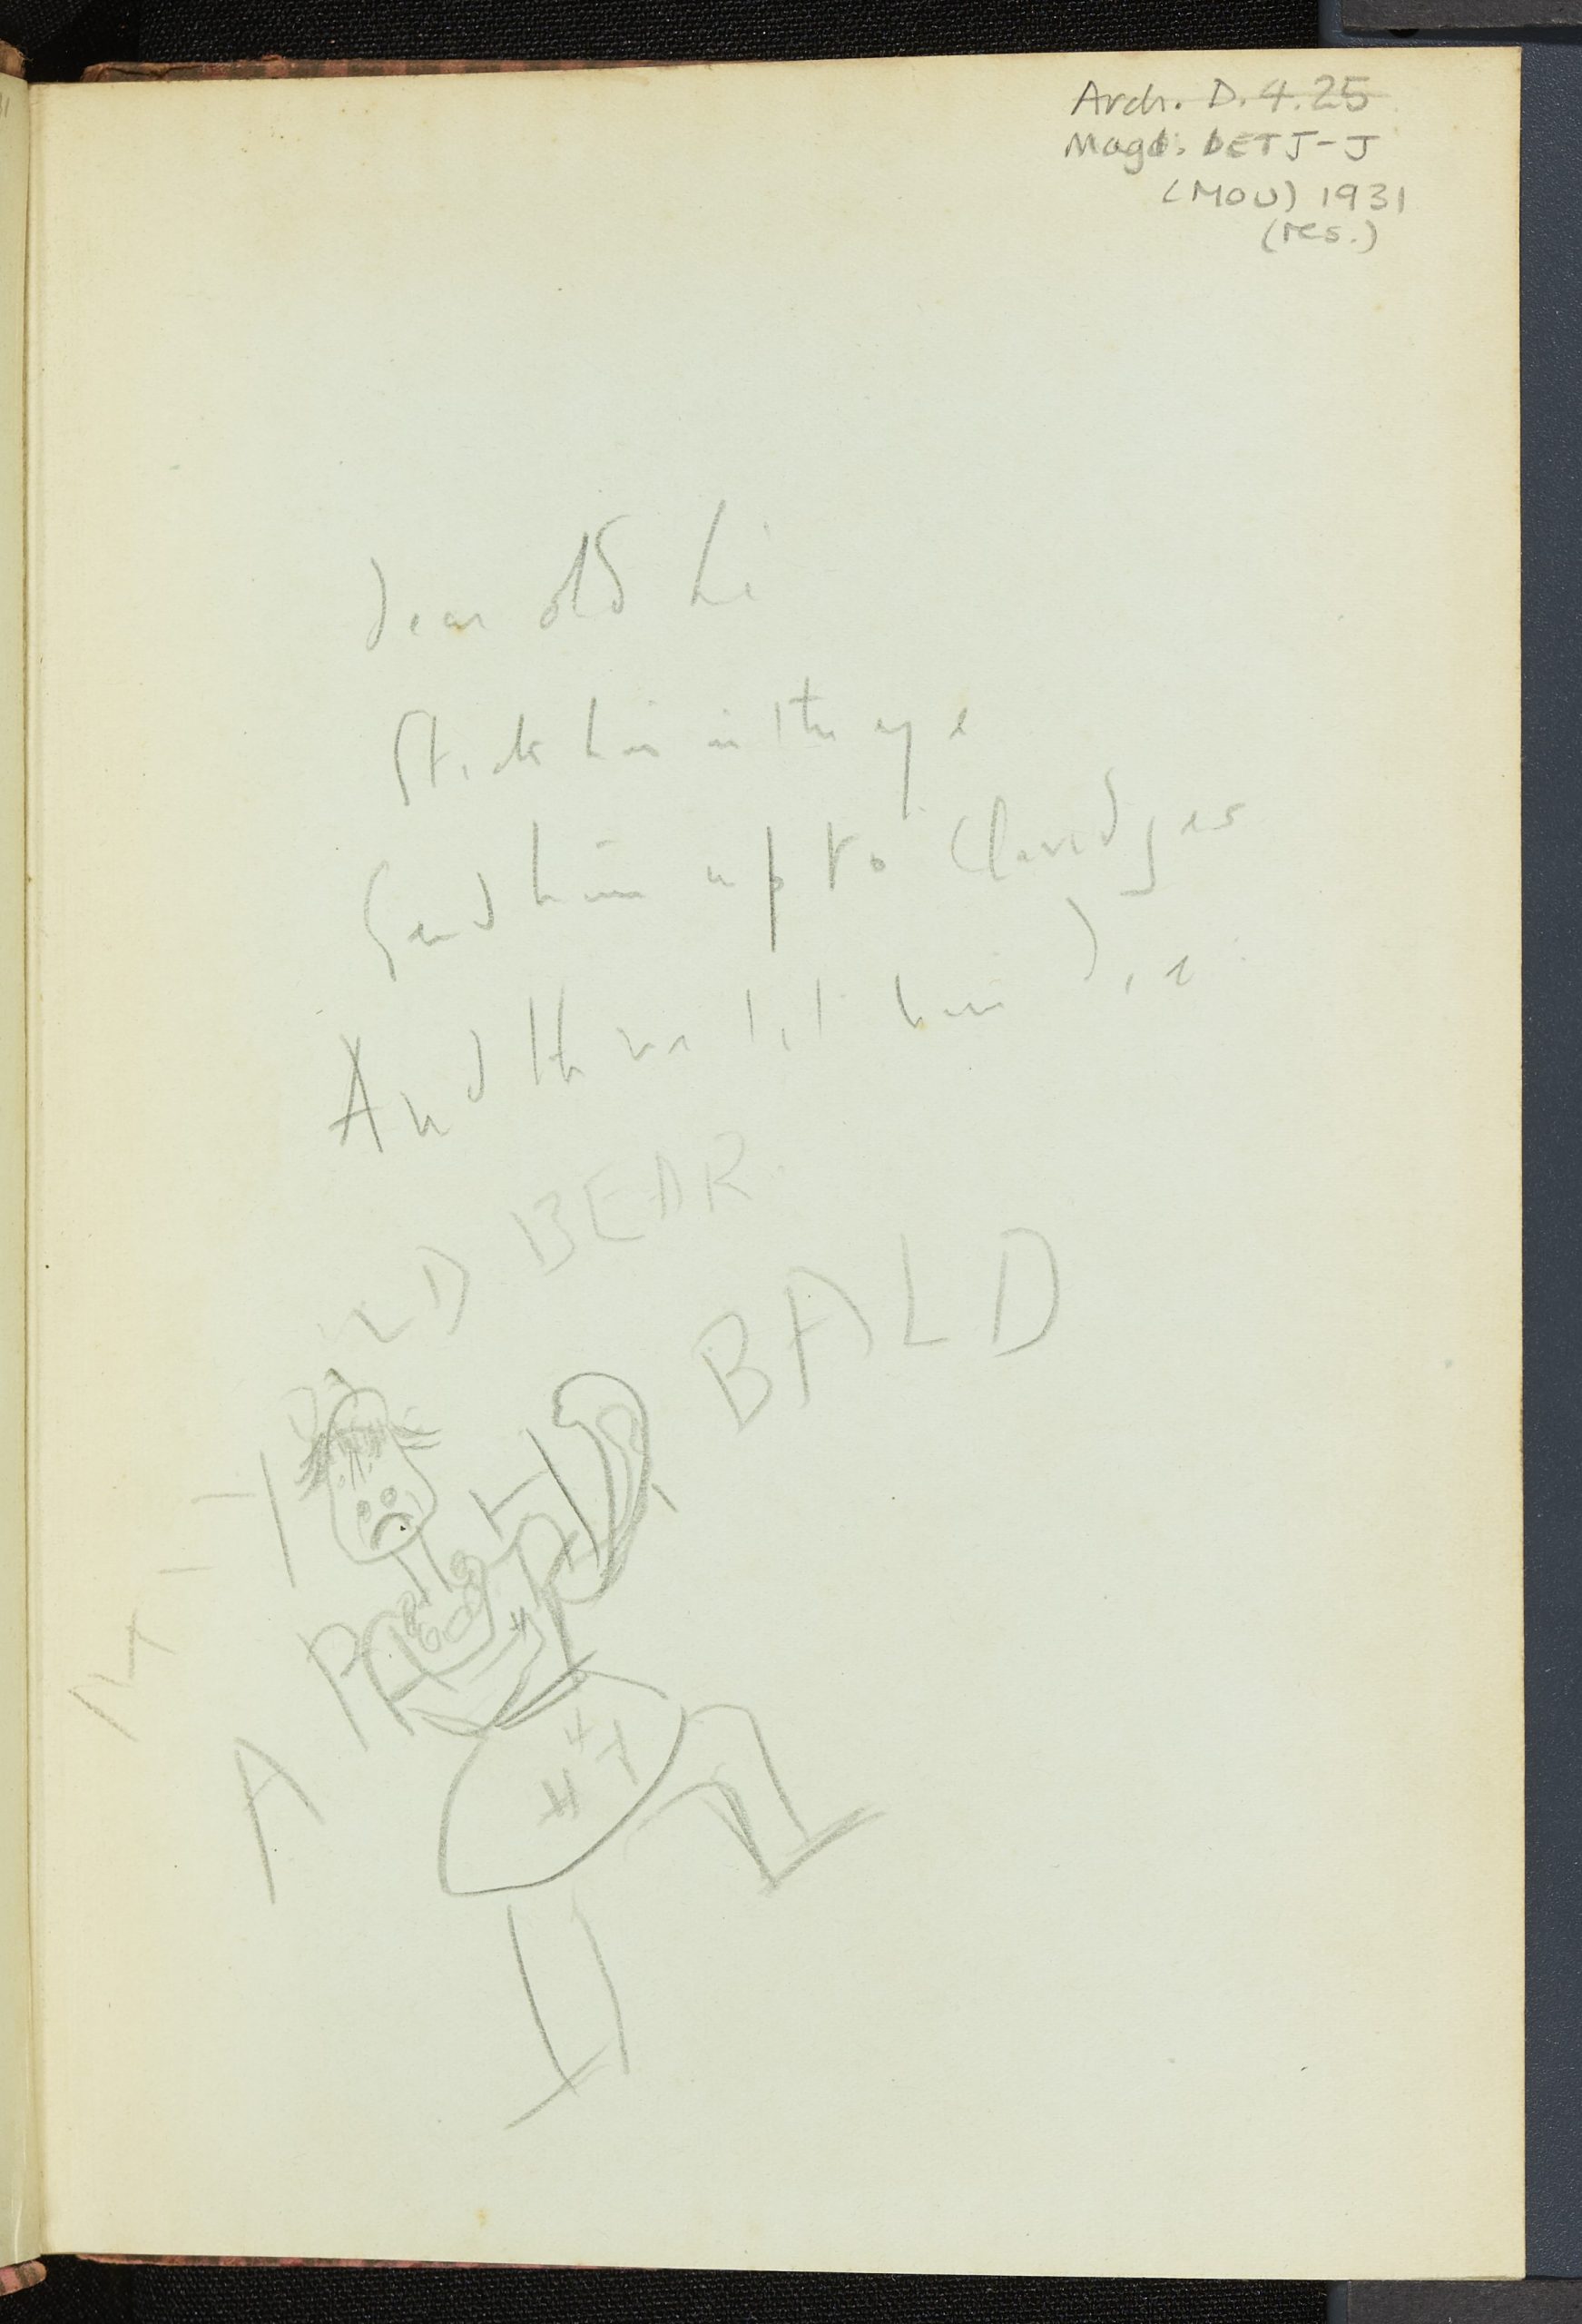 Arch. D. 4. 25
Magd. DETJ-J
(MOU) 1931
(res.)
Dear old Li
Stick him in the eye
Send him up to Claridges
And then let him Die
BALD BEAR
BALD
A